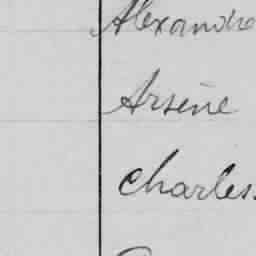 Alexandre
Arsène
Charles.